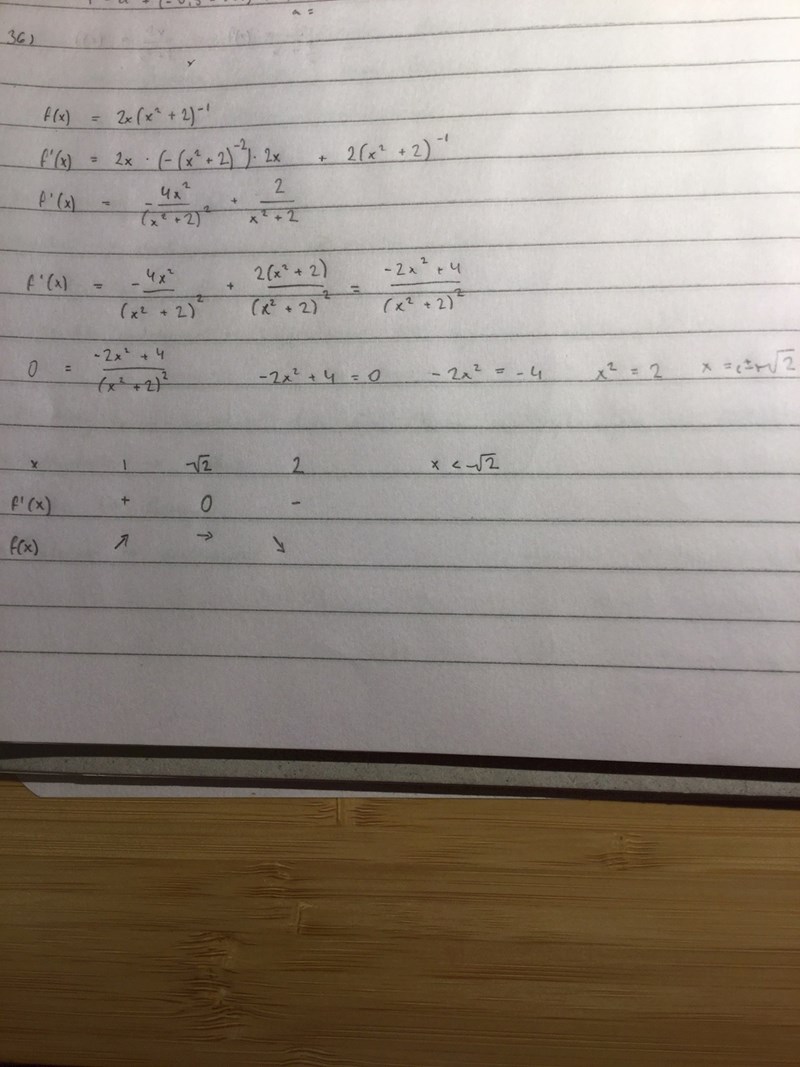 a =
36)
f(x) = 2x(x² + 2)⁻¹
f'(x) = 2x · (-(x² + 2)⁻²) · 2x + 2(x² + 2)⁻¹
f'(x) = -4x²/(x² + 2)² + 2/(x² + 2)
f'(x) = -4x²/(x² + 2)² + 2(x² + 2)/(x² + 2)² = (-2x² + 4)/(x² + 2)²
0 = (-2x² + 4)/(x² + 2)² -2x² + 4 = 0 -2x² = -4 x² = 2 x = √2
x 1 √2 2 x < √2
f'(x) + 0 -
f(x) ↗ → ↘